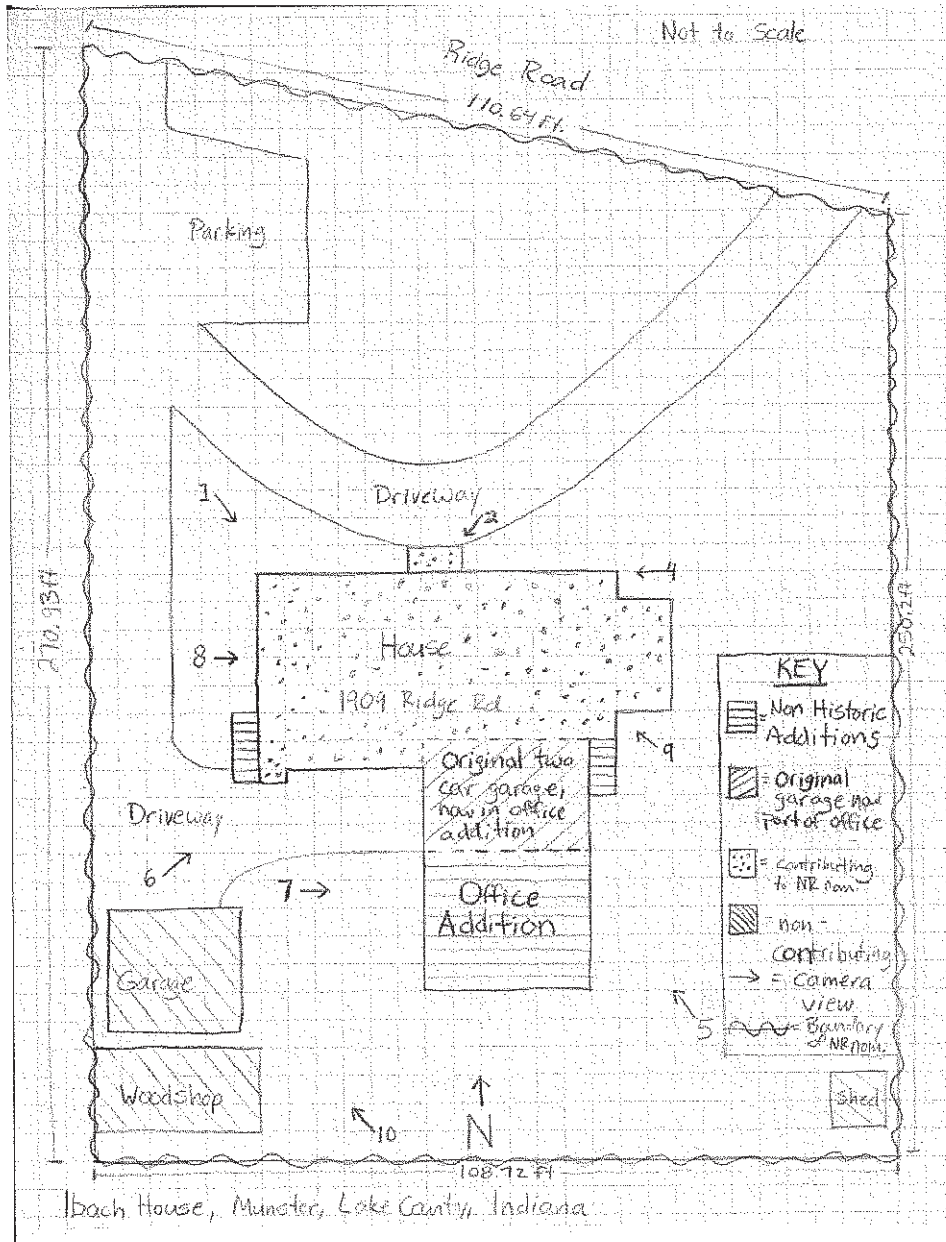 Not to Scale
Ridge Road
110.64 Ft.
Parking
1
Driveway
2
4
270.93ft
250.2ft
House
8
1909 Ridge Rd
9
Original two
car garage,
now in office
addition
Driveway
6
7
Office
Addition
Garage
5
Woodshop
10
N
KEY
= Non Historic
Additions
= Original
garage now
part of office
= contributing
to NR nom.
- non -
contributing
= camera
view
= Boundary
of NR nom.
Shed
108.72 ft
Ibach House, Munster, Lake County, Indiana